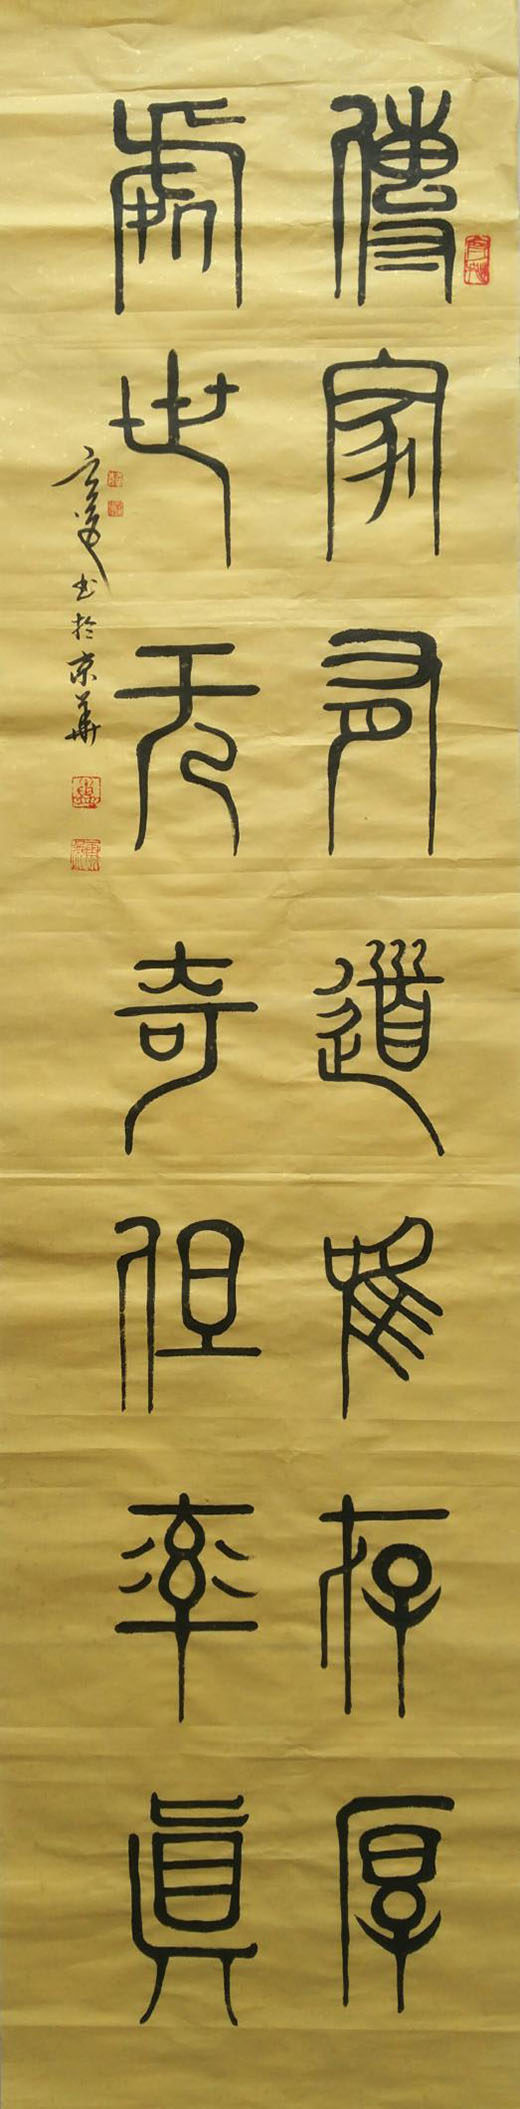 傳家有道唯存厚
處世无奇但率真
书於京華